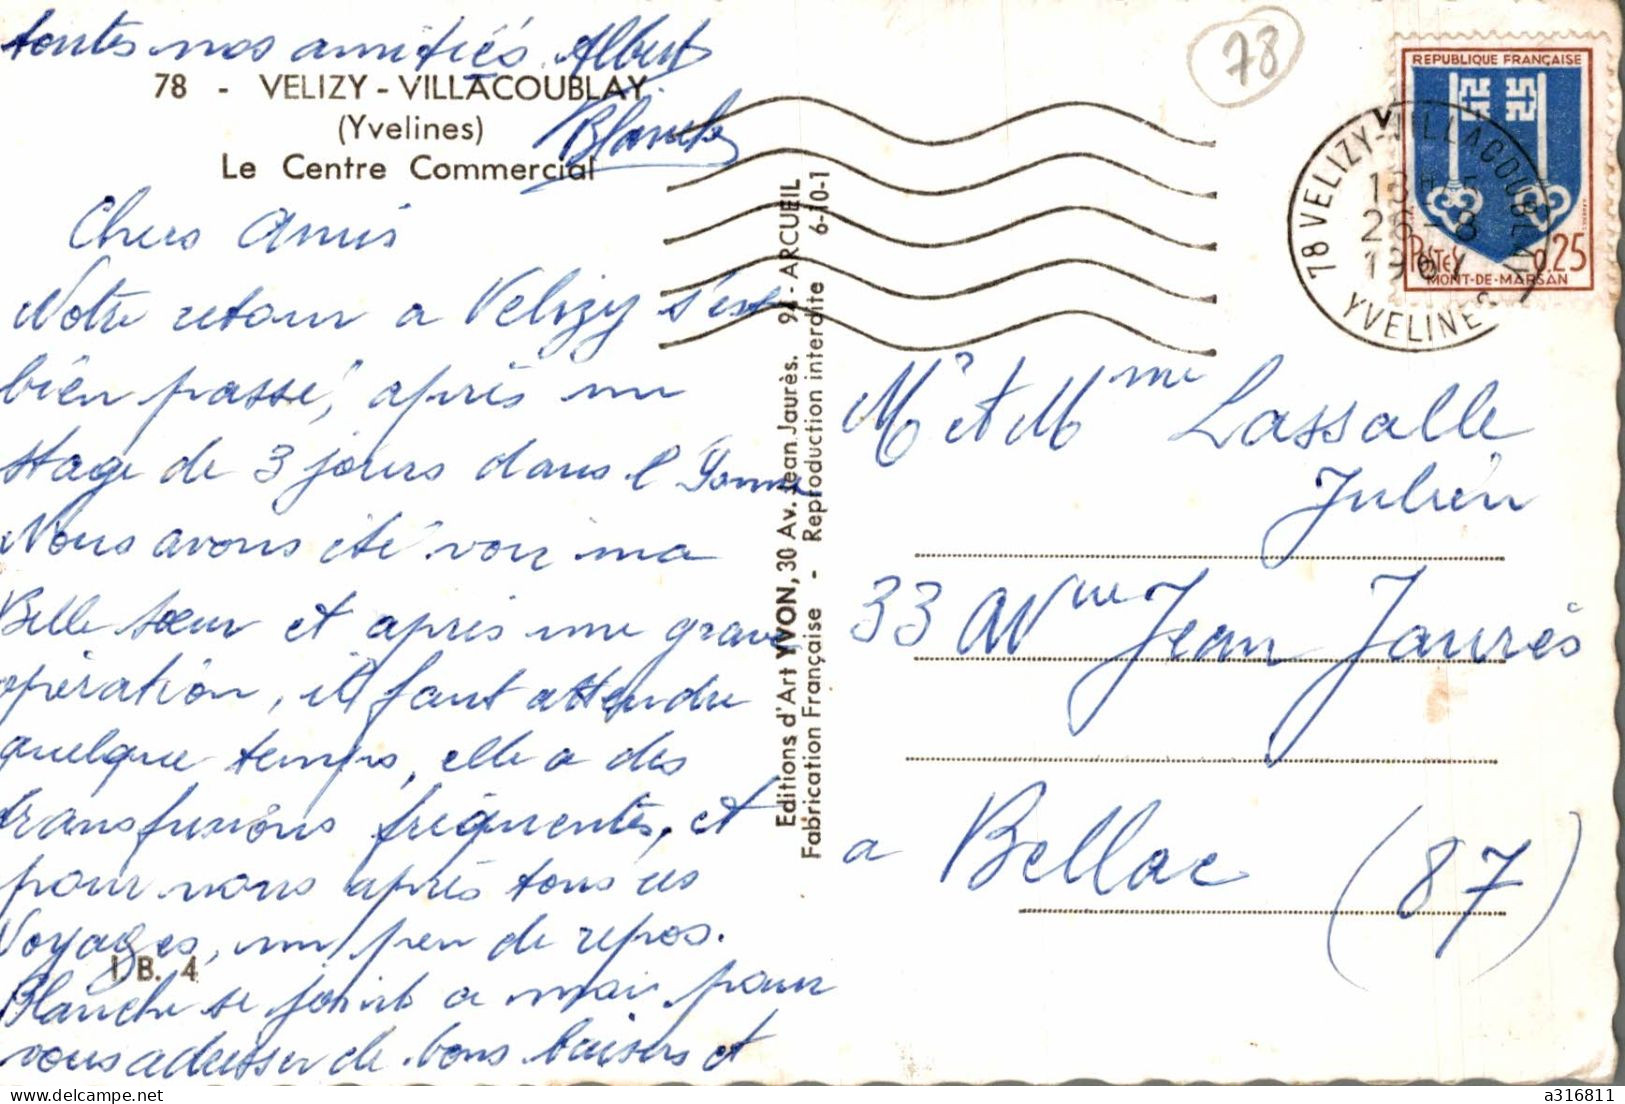 toutes nos amitiés. Albert
Blanche
78 - VELIZY - VILLACOUBLAY
(Yvelines)
Le Centre Commercial
Chers Amis
Notre retour a Velizy s'est
bien passé, après un
stage de 3 jours dans l'Yonne
Nous avons été voir ma
Belle sœur et après une grave
opération, il faut attendre
quelque temps, elle a des
transfusions fréquentes, et
pour nous après tous ces
Voyages, un peu de repos.
I.B. 4
Blanche se joint a moi pour
vous adresser de bons baisers et
Editions d'Art YVON, 30 Av. Jean Jaurès. 94 - ARCUEIL
Fabrication Française - Reproduction interdite 6-10-1
78
REPUBLIQUE FRANÇAISE
POSTES 0,25
MONT-DE-MARSAN
78 VELIZY-VILLACOUBLAY
26-8
YVELINES
Mr et Mme Lassalle
Julien
33 Avnue Jean Jaurès
a Bellac (87)
a316811